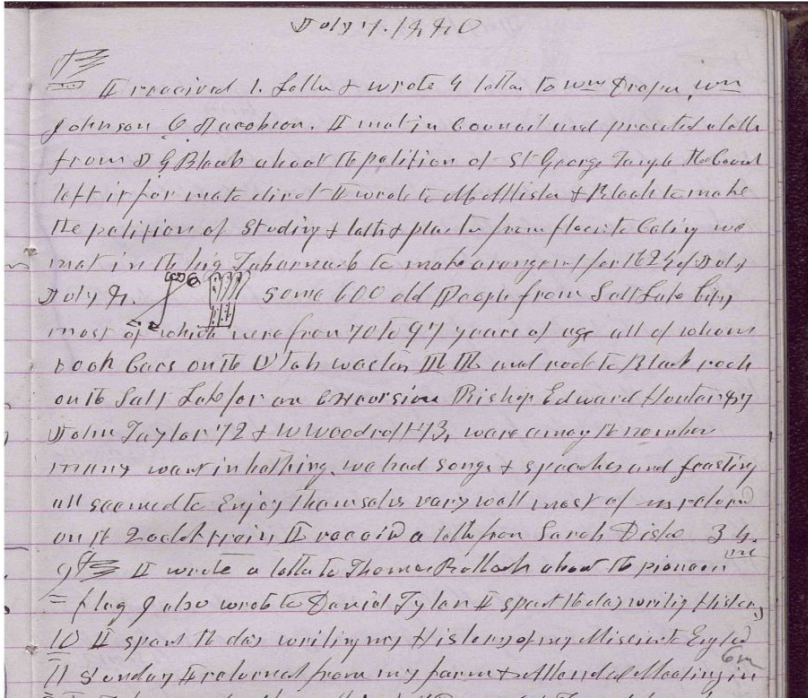 July 7. 1880
I received 1. Letter & wrote 4 letters to Wm Draper, Wm
Johnson C Jacobson. I met in Council and
from D G Black about the petition of St George Temple the Council
left it for I wrote to McAllister & Black to make
the petition of Studing & lath & plaster from floor to Ceiling we
met in the big Tabernacle to make arangemt for the 24 of July
July 8. some 600 old People from Salt Lake City
most of which were from 70 to 97 years of age all of whom
took Cars on the Utah western RR and rode to Black rock
on the Salt Lake for an excursion Bishop Edward Hunter 87
John Taylor 72 & W Woodruff 73, were among the number
many went in bathing. we had songs & speeches and feasting
all seemed to Enjoy themselves very well most of us returned
on the 2 oclok train I receivd a letter from Sarah 34.
9 I wrote a letter to Thomas Bullock about the pioneer
flag I also wrote to David I spent the day writing History
10 I spent the day writing my History of my Mission to England
6 m
11 Sunday I returned from my farm & Attended Meeting in